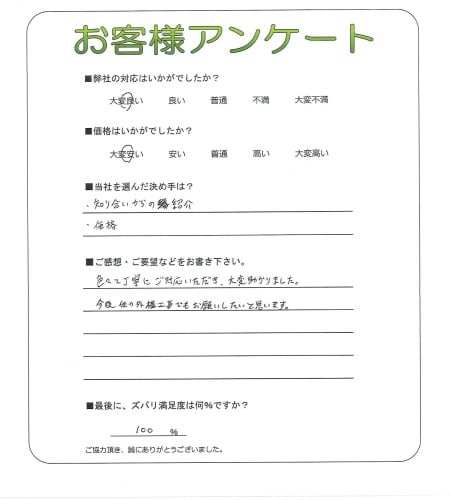 お客様アンケート
■弊社の対応はいかがでしたか？
大変良い 良い 普通 不満 大変不満
■価格はいかがでしたか？
大変安い 安い 普通 高い 大変高い
■当社を選んだ決め手は？
・知り合いからの紹介
・価格
■ご感想・ご要望などをお書き下さい。
色々と丁寧にご対応いただき、大変助かりました。
今後他の外構工事でもお願いしたいと思います。
■最後に、ズバリ満足度は何%ですか？
100 %
ご協力頂き、誠にありがとうございました。